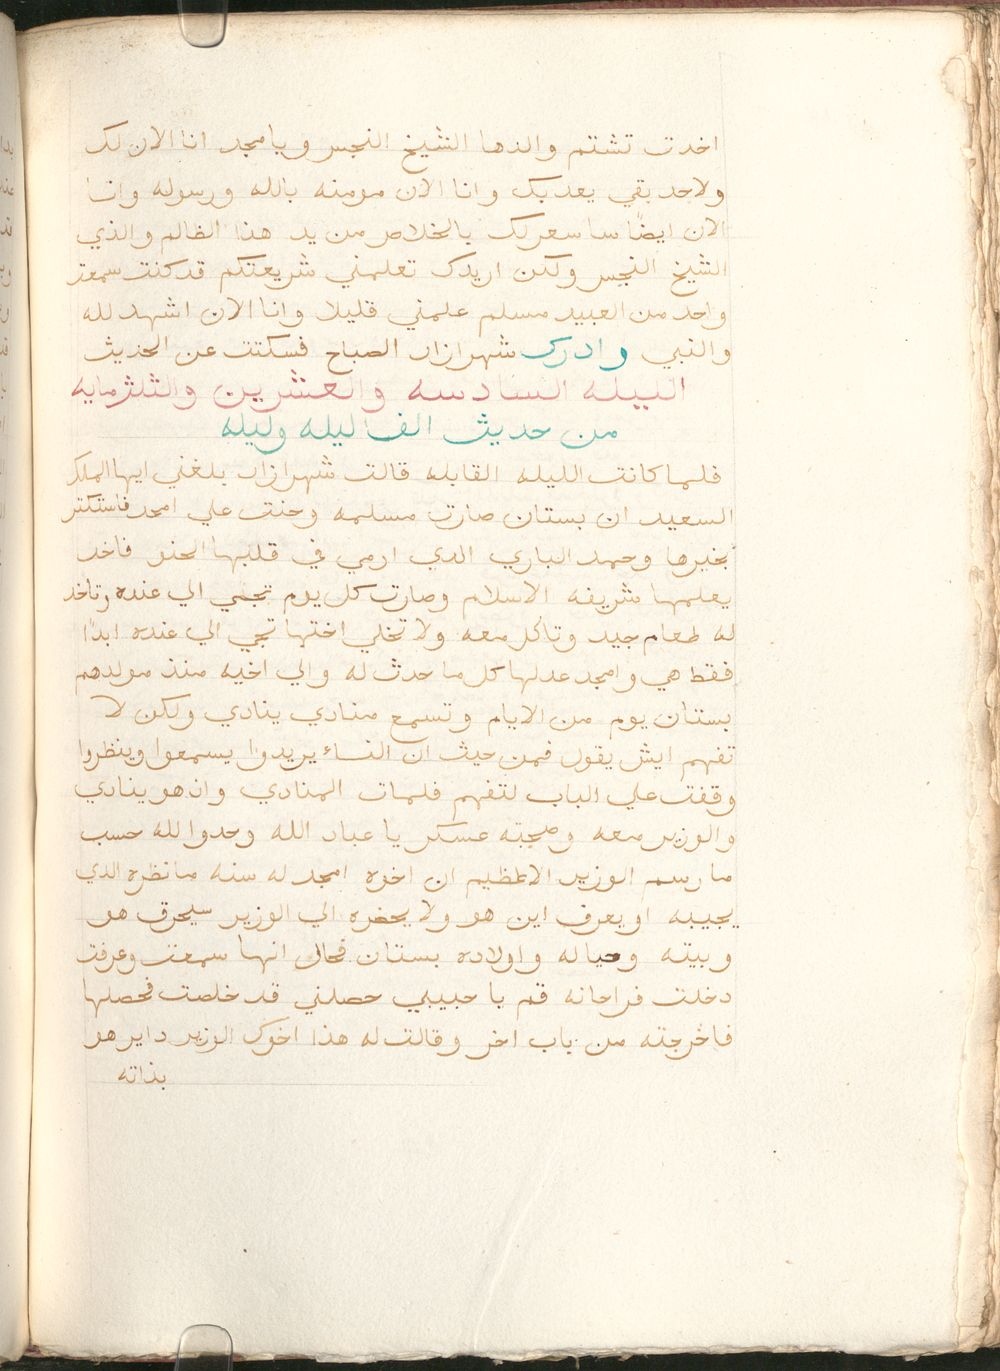 اخدت تشتم والدها الشيخ النجس ويامجد انا الان لك
ولاحد بقي يعدبك وانا الان مومنه بالله ورسوله وانا
الان ايضًا ساسعر لك بالخلاص من يد هذا الظالم والذي
الشيخ النجس ولكن اريدك تعلمني شريعتكم قد كنت سمعت
واحد من العبيد مسلم علمني قليلا وانا الان اشهد لله
والنبي وادرك شهرازاد الصباح فسكتت عن الحديث
الليله السادسه والعشرين والثلثمايه
من حديث الف ليله وليله
فلما كانت الليله القابله قالت شهرازاد بلغني ايها الملك
السعيد ان بستان صارت مسلمه وحنت علي امجد فاستكتر
بخيرها وحمد الباري الدي ارمي في قلبها الحنو فاخد
يعلمها شريفه الاسلام وصارت كل يوم تجي الي عنده وتاخد
له طعام جيد وتاكل معه ولا تخلي اختها تجي الي عنده ابدًا
فقط هي وامجد عدلها كل ما حدث له والي اخيه منذ مولدهم
بستان يوم من الايام وتسمع منادي ينادي ولكن لا
تفهم ايش يقول فمن حيث ان النساء يريدوا يسمعوا وينظروا
وقفت علي الباب لتفهم فلمات المنادي وان هو ينادي
والوزير معه وصحبته عسكر يا عباد الله وحدوا لله حسب
ما رسم الوزير الاعظيم ان اخوه امجد له سنه ما نظره الدي
يجيبه او يعرف اين هو ولا يحضره الي الوزير سيحرق هو
وبيته وحياله واولاده بستان فحال انها سمعت وعرفت
دخلت فراحانه قم با حبيبي حصلني قد خلصت فحصلها
فاخرجته من باب اخر وقالت له هذا اخوك الوزير داير هو
بذاته